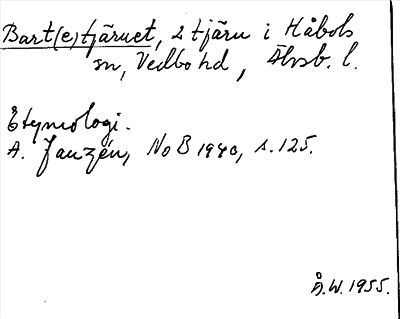 Bart(e)tjärnet, 2 tjärn i Håbols
sn, Vedbo hd, Älvsb. l.
Etymologi.
A. Janzén, NoB 1940, s. 125.
Å.W. 1955.